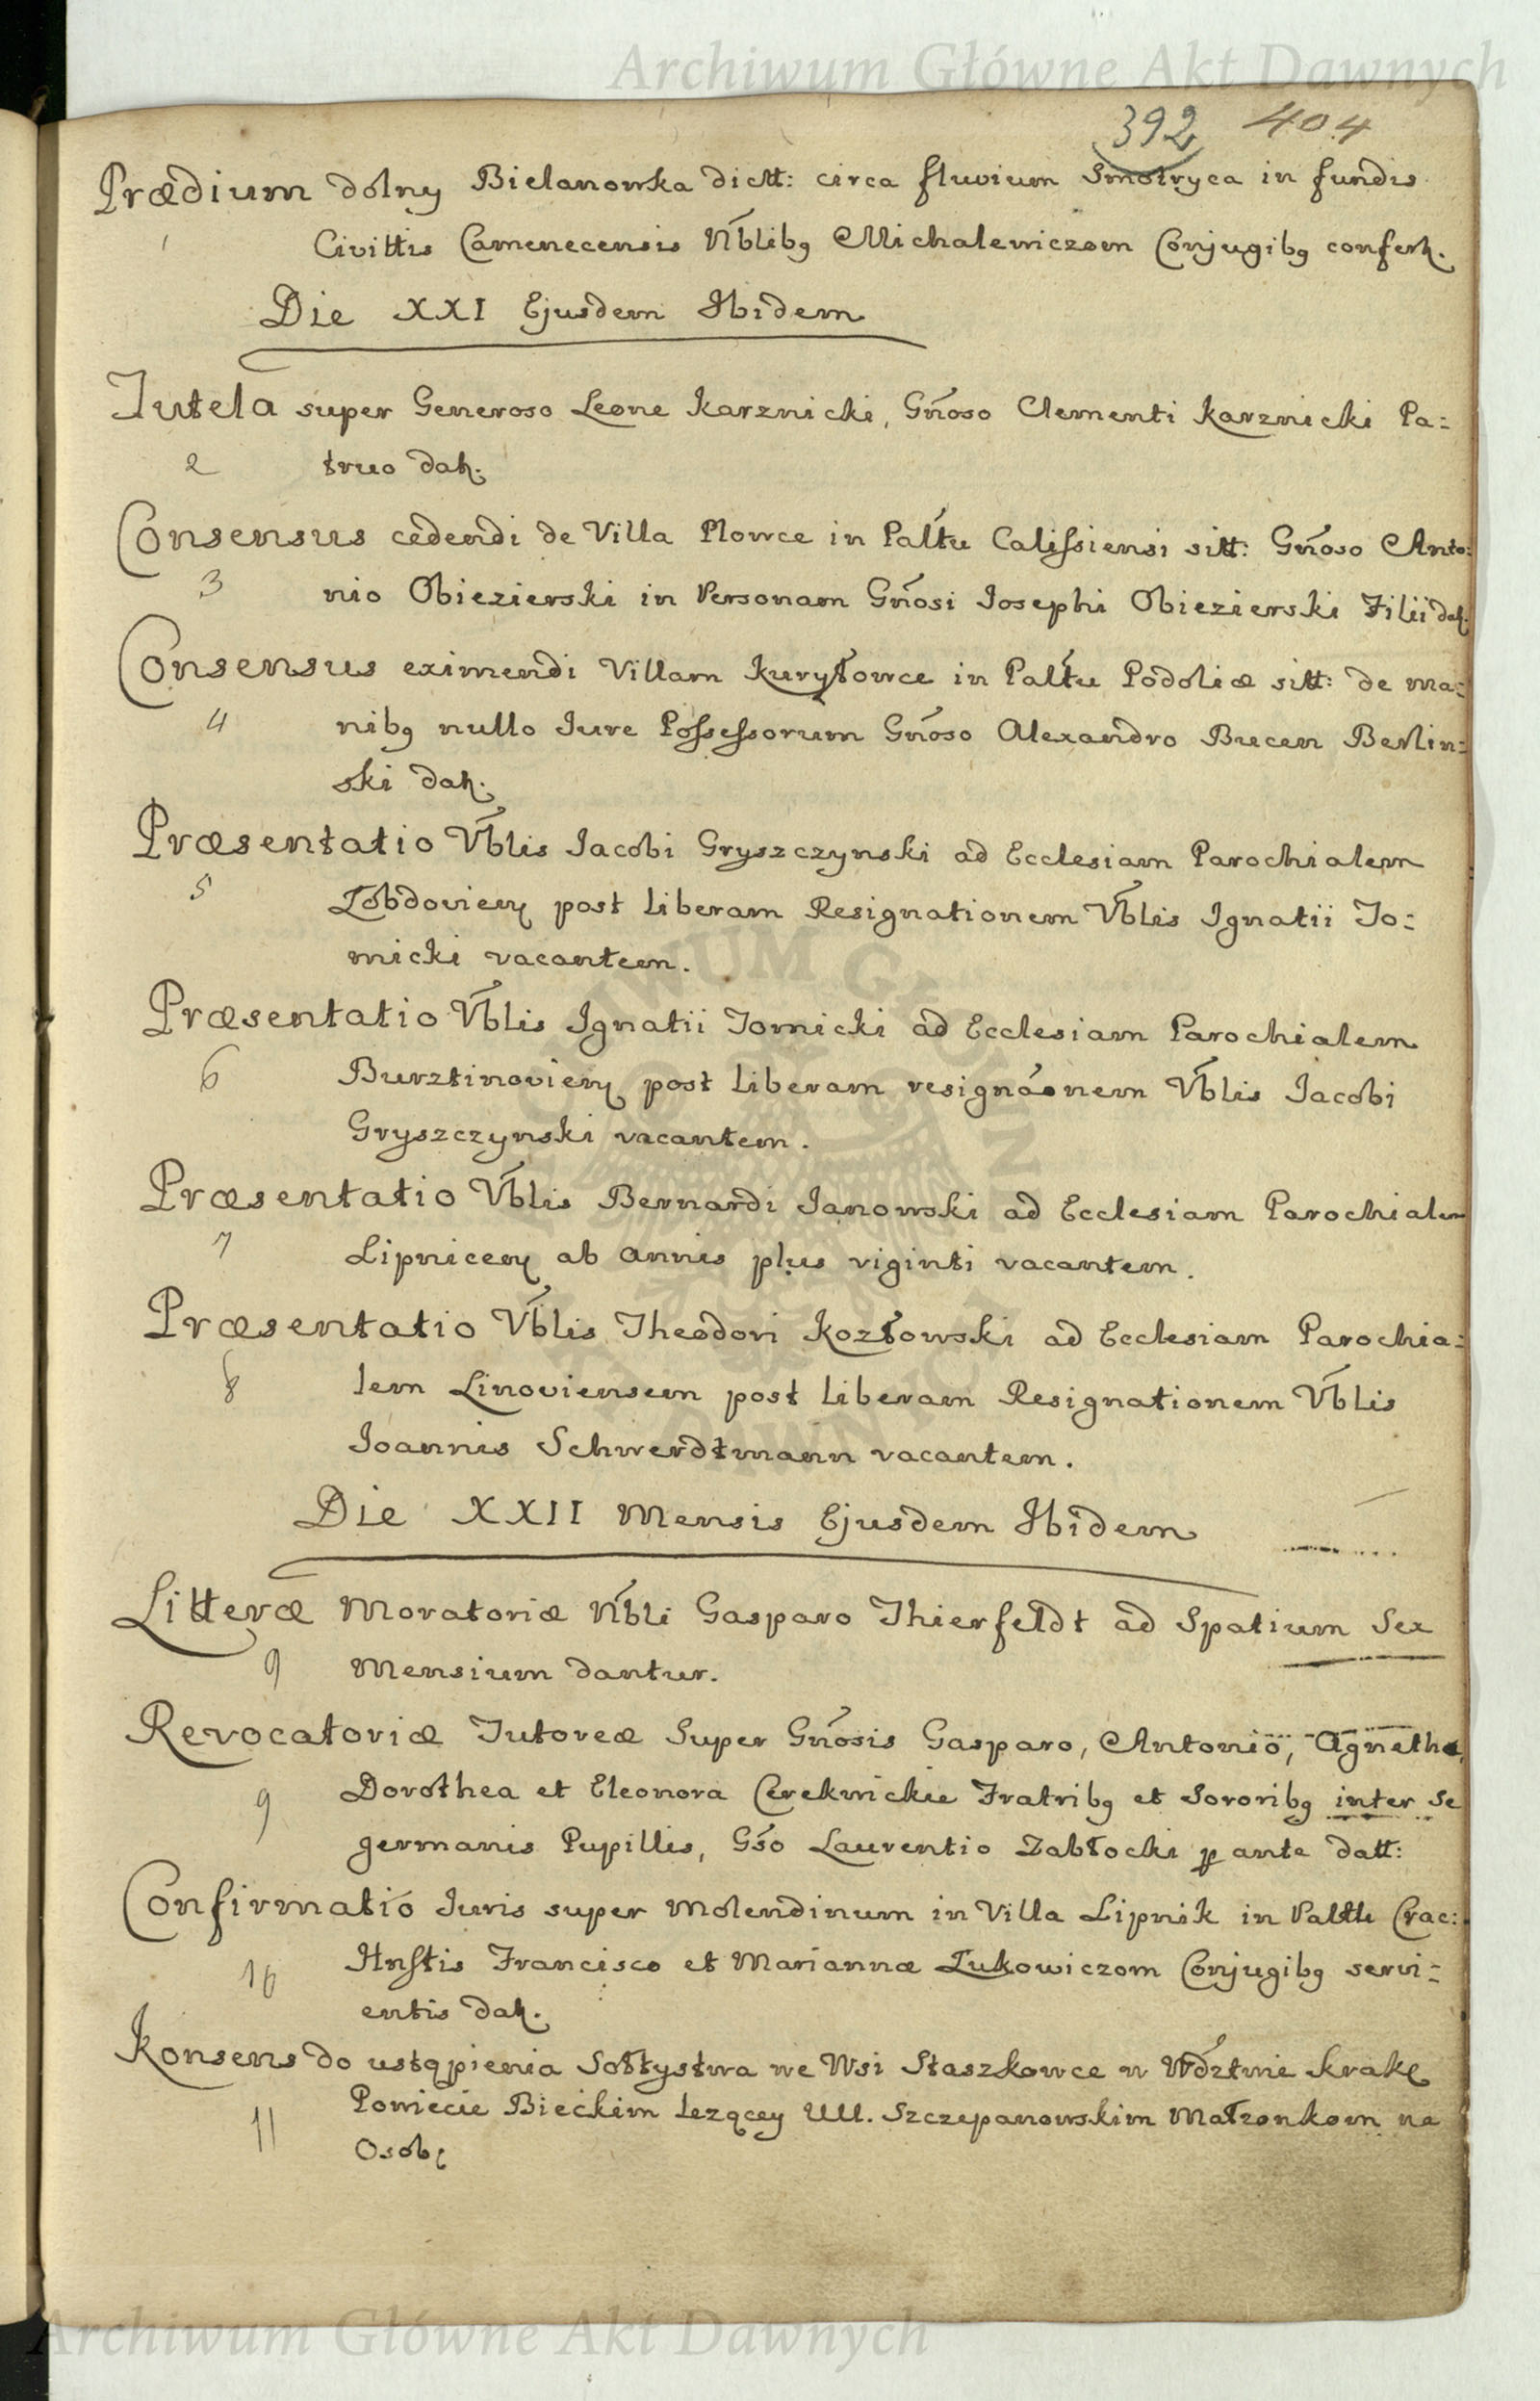 Archiwum Główne Akt Dawnych
392 404
Prædium dolny Bielanowka dictt: circa fluvium Smotryca in fundis
1 Civittis Camenecensis Nblibg Michalewiczom Conjugibg confertr.
Die XXI Ejusdem Ibidem
Tutela super Generoso Leone Karznicki, Gnoso Clementi Karznicki Pa=
2 truo datr.
Consensus cedendi de Villa Plowce in Palttu Calissiensi sitt: Gnoso Anto=
3 nio Obiezierski in Personam Gnosi Josephi Obiezierski Filii datr.
Consensus eximendi Villam Kuryłowce in Palttu Podoliæ sitt: de ma=
4 nibg nullo Jure Possessorum Gnoso Alexandro Bucen Berlin=
ski datr.
Præsentatio Vblis Jacobi Gryszczynski ad Ecclesiam Parochialem
5 Łobdovien post liberam Resignationem Vblis Ignatii To=
micki vacantem.
Præsentatio Vblis Ignatii Tomicki ad Ecclesiam Parochialem
6 Burztinovien post liberam resignaonem Vblis Jacobi
Gryszczynski vacantem.
Præsentatio Vblis Bernardi Janowski ad Ecclesiam Parochialem
7 Lipnicen ab annis plus viginti vacantem.
Præsentatio Vblis Theodori Kozłowski ad Ecclesiam Parochia=
8 lem Linoviensem post liberam Resignationem Vblis
Joannis Schwerdtmann vacantem.
Die XXII Mensis Ejusdem Ibidem
Litteræ Moratoriæ Nbli Gasparo Thierfeldt ad Spatium Sex
9 Mensium dantur.
Revocatoriæ Tutoreæ Super Gnosis Gasparo, Antonio, Agnetha,
9 Dorothea et Eleonora Cerekwickie Fratribg et Sororibg inter se
germanis Pupillis, Gso Laurentio Zabłocki p ante datt:
Confirmatio Juris super Molendinum in Villa Lipnik in Palttu Crac:
10 Hnstis Francisco et Mariannæ Łukowiczom Conjugibg servi=
entis datr.
Konsens do ustąpienia Sołtystwa we Wsi Staszkowce w Wdztwie Krakł
11 Powiecie Bieckim lezącey UU. Szczepanowskim Małzonkom na
Osobę
Archiwum Główne Akt Dawnych